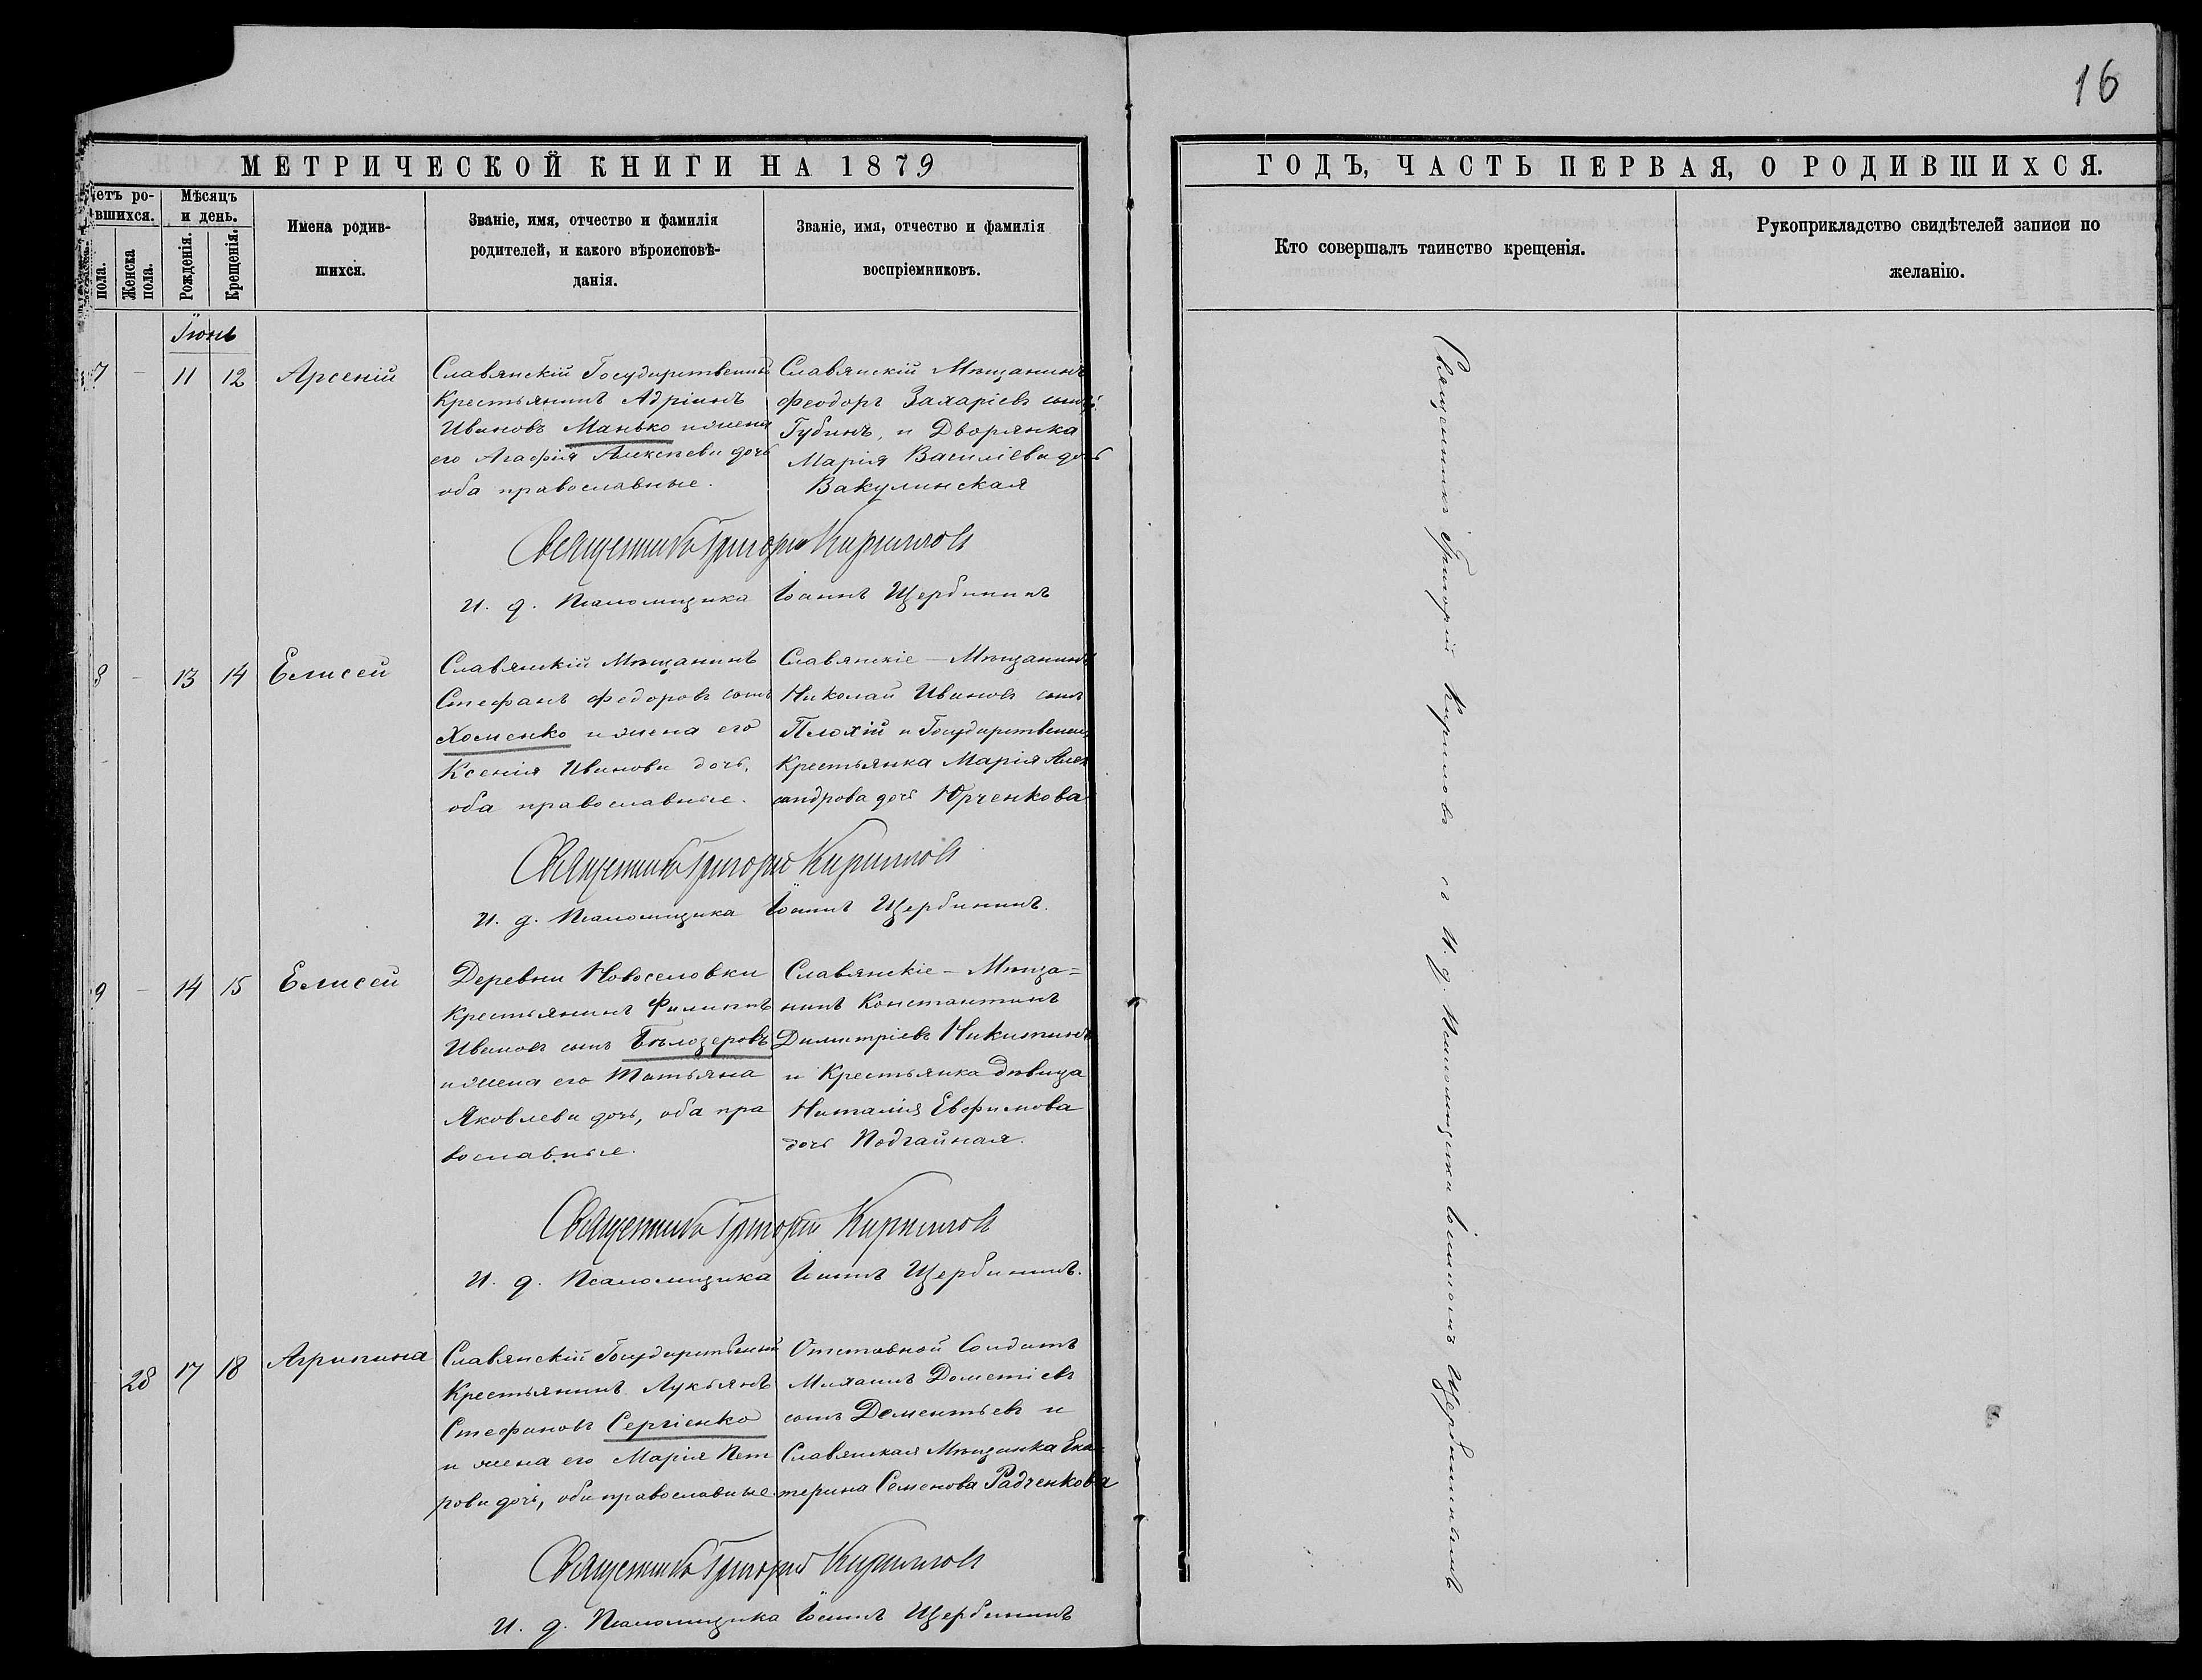 16
МЕТРИЧЕСКОЙ КНИГИ НА 1879
ГОДЪ, ЧАСТЬ ПЕРВАЯ, О РОДИВШИХСЯ.
етъ ро-
вшихся.
пола.
Женска пола.
Мѣсяцъ
и день.
Рожденія.
Крещенія.
Имена родив-
шихся.
Званіе, имя, отчество и фамилія
родителей, и какого вѣроисповѣ-
данія.
Званіе, имя, отчество и фамилія
воспріемниковъ.
Кто совершалъ таинство крещенія.
Рукоприкладство свидѣтелей записи по
желанію.
Іюнь
7 - 11 12 Арсеній
Славянскій Государственный
Крестьянинъ Адріанъ
Ивановъ Манько и жена
его Агафія Алексѣева дочь
оба православные.
Славянскій Мѣщанинъ
Феодоръ Захаріевъ сынъ
Губинъ, и Дворянка
Марія Василіева дочь
Вакулинская
Священникъ Григорій Кирилловъ
И. д. Псаломщика Іоаннъ Щербининъ
8 - 13 14 Елисей
Славянскій Мѣщанинъ
Стефанъ Федоровъ сынъ
Хоменко и жена его
Ксенія Иванова дочь,
оба православные.
Славянскіе - Мѣщанинъ
Николай Ивановъ сынъ
Плохій и Государственная
Крестьянка Марія Алек
сандрова дочь Юрченкова
Священникъ Григорій Кирилловъ
И. д. Псаломщика Іоаннъ Щербининъ.
9 - 14 15 Елисей
Деревни Новоселовки
Крестьянинъ Филиппъ
Ивановъ сынъ Бѣлозеровъ
и жена его Татьяна
Яковлева дочь, оба пра
вославные.
Славянскіе - Мѣща=
нинъ Константинъ
Димитріевъ Никитинъ
и Крестьянка дѣвица
Наталія Евфимова
дочь Подгайная.
Священникъ Григорій Кирилловъ
И. д. Псаломщика Іоаннъ Щербининъ.
28 17 18 Агрипина
Славянскій Государственный
Крестьянинъ Лукьянъ
Стефановъ Сергіенко
и жена его Марія Пет
рова дочь, оба православные.
Отставной Солдатъ
Михаилъ Дометіевъ
сынъ Дементьевъ и
Славянская Мѣщанка Ека=
терина Семенова Радченкова
Священникъ Григорій Кирилловъ
И. д. Псаломщика Іоаннъ Щербининъ
Священникъ Григорій Кирилловъ съ И. д. Псаломщика Іоанномъ Щербининымъ